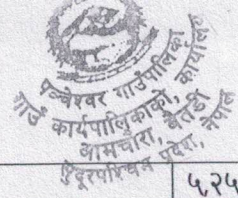 पञ्चेश्वर गाउँपालिका
गाउँ कार्यपालिकाको, कार्यालय
आमचौरा, बैतडी
सुदूरपश्चिम प्रदेश, नेपाल
५,२५